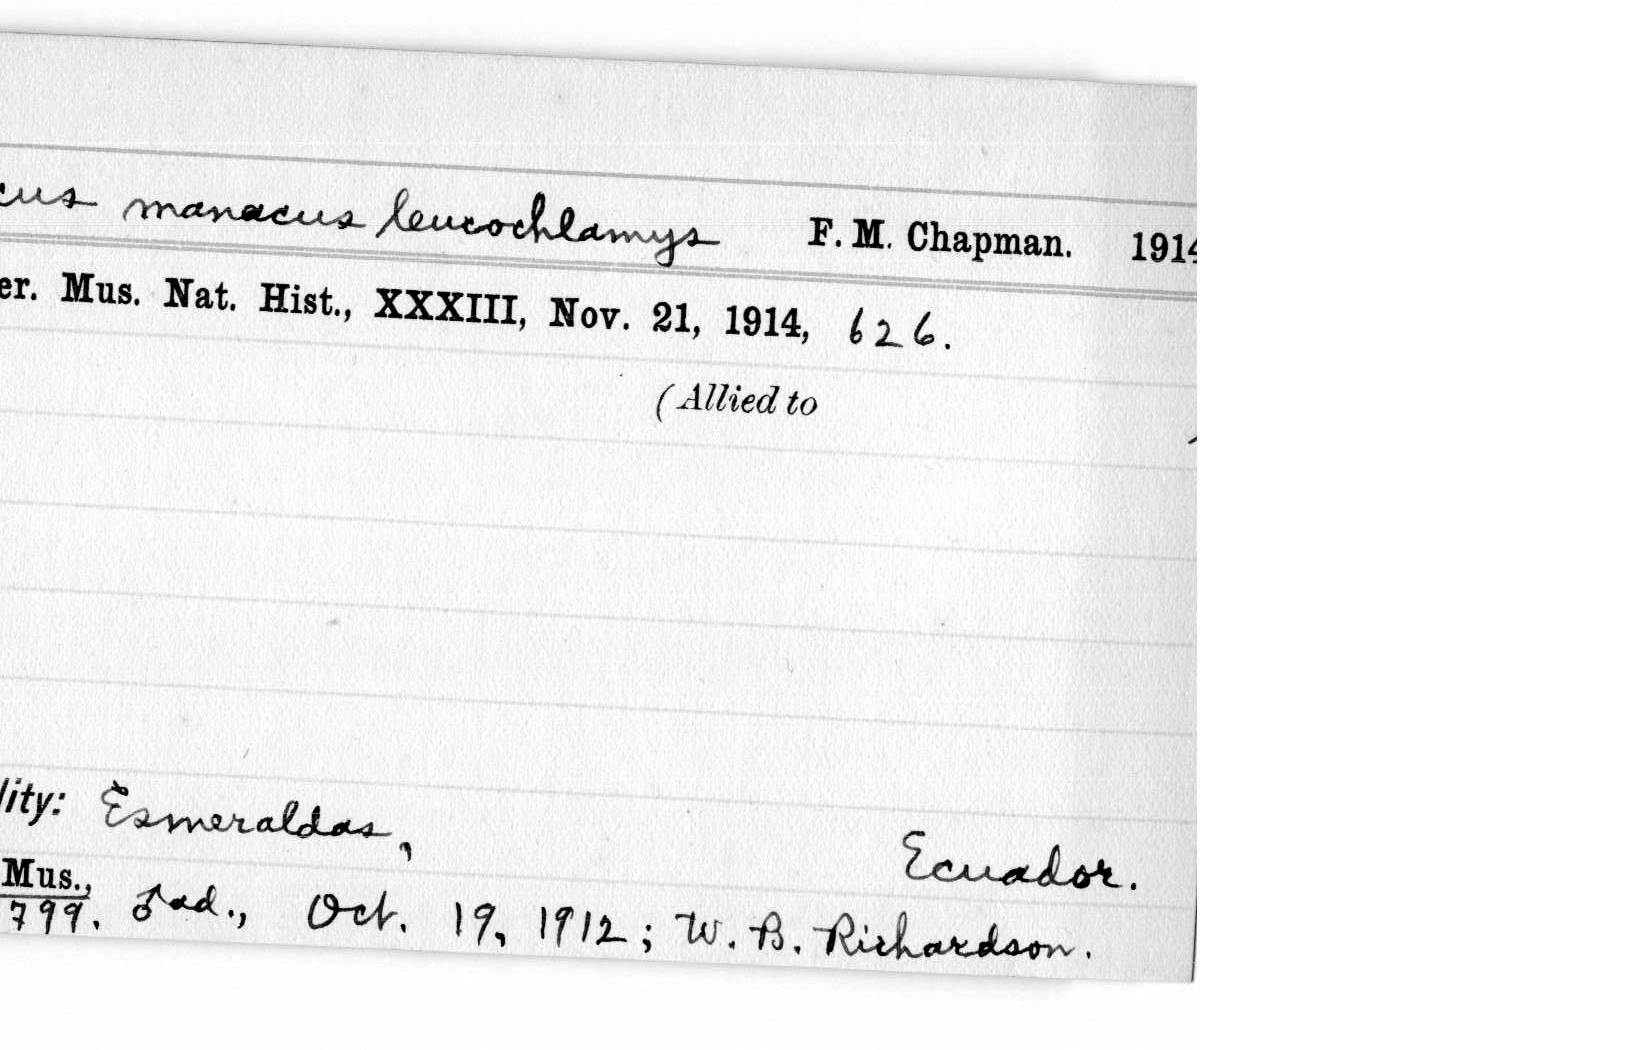 cus manacus leucochlamys F. M. Chapman. 1914
er. Mus. Nat. Hist., XXXIII, Nov. 21, 1914, 626.
(Allied to
lity: Esmeraldas, Ecuador.
Mus.,
799. ♂ad., Oct. 19, 1912; W. B. Richardson.